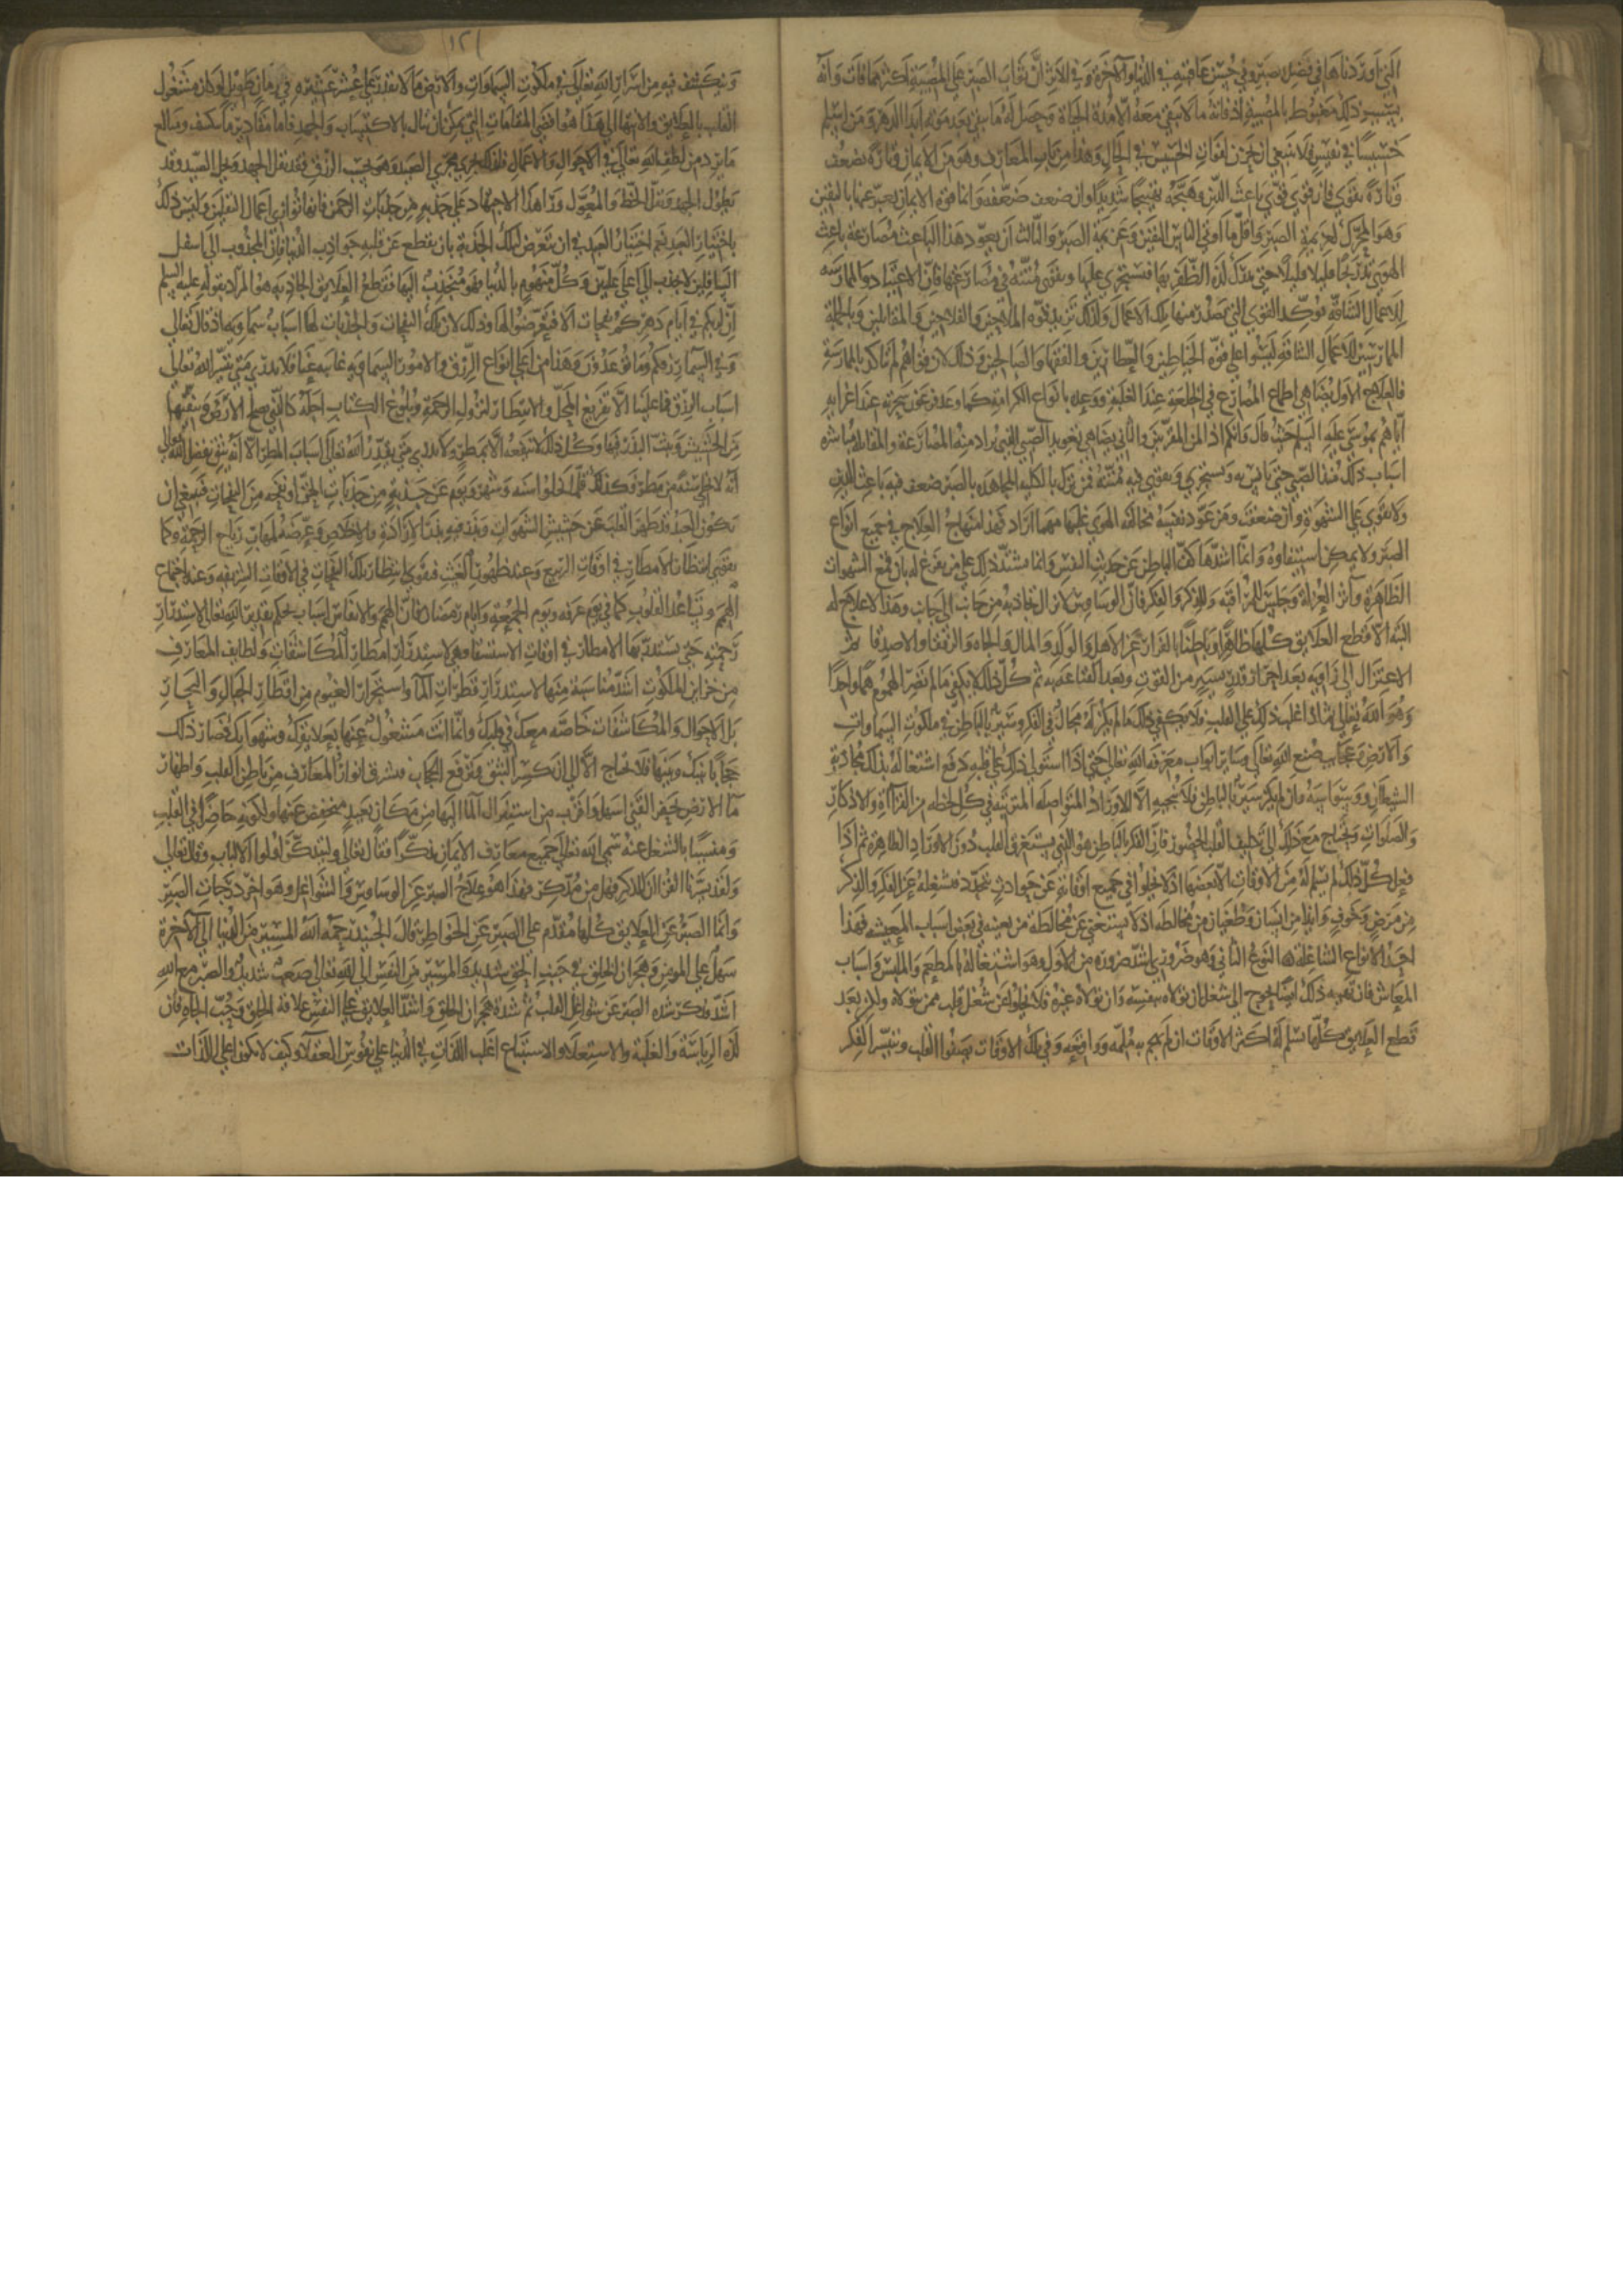 التي اوردناها في فضل الصبر وفي حسن عواقبه في الدنيا والاخرة وفي الاثر ان ثواب الصبر على المصيبة اكثر مما فات وانه
بسبب ذلك مغبوط بالمصيبة اذ فاته ما لا يبقى معه الا مدة الحياة وحصل له ما يبقى بعد موته ابدا الدهر ومن اسلم
خسيسا في نفيس فلا ينبغي ان يحزن لفوات الخسيس في الحال وهذا من باب المعارف وهو من الايمان فتارة يضعف
وتارة يقوى فان قوي قوى باعث الدين وهيجه تهييجا شديدا وان ضعف ضعفه وانما قوة الايمان يعبر عنها باليقين
وهو المحرك لعزيمة الصبر واقل ما اوتي الناس اليقين وعزيمة الصبر والثاني ان يعود هذا الباعث مصارعة باعث
الهوى تدريجا قليلا قليلا حتى يدرك لذة الظفر بها فيستجرئ عليها وتقوى منته في مصارعتها فان الاعتياد والممارسة
للاعمال الشاقة توكد القوى التي تصدر منها تلك الاعمال ولذلك تزيد قوة الحمالين والفلاحين والمقاتلين وبالجملة
الممارسين للاعمال الشاقة ليسوا على قوة الخياطين والعطارين والفقها والصالحين وذلك لان قواهم لم تتاكد بالممارسة
فالعلاج الاول يضاهي اطماع المصارع في الخلعة عند الغلبة ووعده بانواع الكرامة كما وعد فرعون سحرته عند اغرايه
اياهم بموسى عليه السلم حيث قال وانكم اذا لمن المقربين والثاني يضاهي تعويد الصبي الذي يراد منه المصارعة والمقاتلة مباشرة
اسباب ذلك منذ الصبى حتى يانس به ويستجرئ ويقوى فيه منته فمن ترك بالكلية المجاهدة بالصبر ضعف فيه باعث الدين
ولا يقوى على الشهوة وان ضعفت ومن عود نفسه مخالفة الهوى غلبها مهما اراد فهذا منهاج العلاج في جميع انواع
الصبر ولا يمكن استيفاوه وانما اشدها كف الباطن عن حديث النفس وانما يشتد ذلك على من تفرغ له بان قمع الشهوات
الظاهرة واثر العزلة وجلس للمراقبة والذكر والفكر فان الوسواس لا يزال يجاذبه من جانب الى جانب وهذا لا علاج له
البتة الا قطع العلايق كلها ظاهرا وباطنا بالفرار عن الاهل والولد والمال والجاه والرفقا والاصدقا ثم
الاعتزال الى زاوية بعد احراز قدر يسير من القوت وبعد القناعة به ثم كل ذلك لا يكفي ما لم تصر الهموم هما واحدا
وهو الله تعالى ثم اذا غلب ذلك على القلب فلا يكفي ذلك ما لم يكن له مجال في الفكر وسير بالباطن في ملكوت السماوات
والارض وعجايب صنع الله تعالى وساير ابواب معرفة الله تعالى حتى اذا استولى ذلك على قلبه دفع اشتغاله بذلك مجاذبة
الشيطان ووسواسه وان لم يكن له سير بالباطن فلا ينجيه الا الاوراد المتواصلة المترتبة في كل لحظة من القراة والاذكار
والصلوات ويحتاج مع ذلك الى تكليف القلب الحضور فان الفكر بالباطن هو الذي يستغرق القلب دون الاوراد الظاهرة ثم اذا
فعل كل ذلك لم يسلم له من الاوقات الا بعضها اذ لا يخلو في جميع اوقاته عن حوادث تتجدد فتشغله عن الفكر والذكر
من مرض وخوف وايذا من انسان وطغيان من مخالطة اذ لا يستغني عن مخالطة من يعينه في بعض اسباب المعيشة فهذا
احد الانواع الشاغلة اما النوع الثاني وهو ضروري اشد ضرورة من الاول وهو اشتغاله بالمطعم والملبس واسباب
المعاش فان تهية ذلك ايضا تحوج الى شغل ان تولاه بنفسه وان تولاه غيره فلا يخلو عن شغل قلب بمن يتولاه ولكن بعد
قطع العلايق كلها يسلم له اكثر الاوقات ان لم تهجم به ملمة وواقعة وفي تلك الاوقات يصفوا القلب ويتيسر الفكر
١٢١
وينكشف فيه من اسرار الله تعالى في ملكوت السماوات والارض ما لا يقدر على عشر عشيره في زمان طويل لو كان مشغول
القلب بالعلايق والانتهاء الى هذا هو اقصى المقامات التي يمكن ان ينال بالاكتساب والجهد فاما مقادير ما ينكشف ومبالغ
ما يرد من لطف الله تعالى في الاحوال والاعمال فذلك يجري مجرى الصيد وهو بحسب الرزق فقد يقل الجهد ويجل الصيد وقد
يطول الجهد ويقل الحظ والمعول ورا هذا الاجتهاد على جذبة من جذبات الرحمن فانها توازي اعمال الثقلين وليس ذلك
باختيار العبد نعم اختيار العبد في ان يتعرض لتلك الجذبة بان يقطع عن قلبه جواذب الدنيا فان المجذوب الى اسفل
السافلين لا يجذب الى اعلى عليين وكل منهوم بالدنيا فهو منجذب اليها فقطع العلايق الجاذبة هو المراد بقوله عليه السلم
ان لربكم في ايام دهركم نفحات الا فتعرضوا لها وذلك لان تلك النفحات والجذبات لها اسباب سماوية اذ قال تعالى
وفي السما رزقكم وما توعدون وهذا من اعلى انواع الرزق والامور السماوية غايبة عنا فلا ندري متى ييسر الله تعالى
اسباب الرزق فما علينا الا تفريغ المحل والانتظار لنزول الرحمة وبلوغ الكتاب اجله كالذي يصلح الارض وينقيها
من الحشيش ويبث البذر فيها وكل ذلك لا ينفعه الا بمطر ولا يدري متى يقدر الله تعالى اسباب المطر الا انه يثق بفضل الله تعالى
انه لا يخلي سنة من مطر وكذلك قلما تخلوا سنة وشهر ويوم عن جذبة من جذبات الحق ونفحة من النفحات فينبغي ان
يكون العبد قد طهر القلب عن حشيش الشهوات وبذر فيه بذر الارادة والاخلاص وعرضه لمهاب رياح الرحمة وكما
يقوى انتظار الامطار في اوقات الربيع وعند ظهور الغيم فيقوى انتظار تلك النفحات في الاوقات الشريفة وعند اجتماع
الهمم وتساعد القلوب كما في يوم عرفة ويوم الجمعة وايام رمضان فان الهمم والانفاس اسباب بحكم تقدير الله تعالى لاستدرار
رحمته حتى يستدر بها الامطار في اوقات الاستسقا وهي لاستدرار امطار المكاشفات ولطايف المعارف
من خزاين الملكوت اشد مناسبة منها لاستدرار قطرات الما واستجرار الغيوم من اقطار الجبال والبحار
بل الاحوال والمكاشفات حاضرة معك في قلبك وانما انت مشغول عنها بعلايقك وشهواتك فصار ذلك
حجابا بينك وبينها فلا تحتاج الا الى ان تكسر الشهوة وترفع الحجاب فتشرق انوار المعارف من باطن القلب واظهار
ما الارض بحفر القنى اسهل واقرب من استنزال الما اليها من مكان بعيد منخفض عنها ولكونه حاضرا في القلب
ومنسيا بالشغل عنه سمى الله تعالى جميع معارف الايمان تذكرا فقال تعالى وليتذكر اولوا الالباب وقال تعالى
ولقد يسرنا القران للذكر فهل من مدكر فهذا هو علاج الصبر عن الوساوس والشواغل وهو اخر درجات الصبر
وانما الصبر عن العلايق كلها مقدم على الصبر عن الخواطر قال الجنيد رحمه الله المسير من الدنيا الى الاخرة
سهل على المومن وهجران الخلق في جنب الحق شديد والمسير من النفس الى الله تعالى صعب شديد والصبر مع الله
اشد فذكر شدة الصبر عن شواغل القلب ثم شدة هجران الخلق واشد العلايق على النفس علاقة الخلق وحب الجاه فان
لذة الرياسة والغلبة والاستعلا والاستتباع اغلب اللذات في الدنيا على نفوس العقلا وكيف لا تكون اغلب اللذات